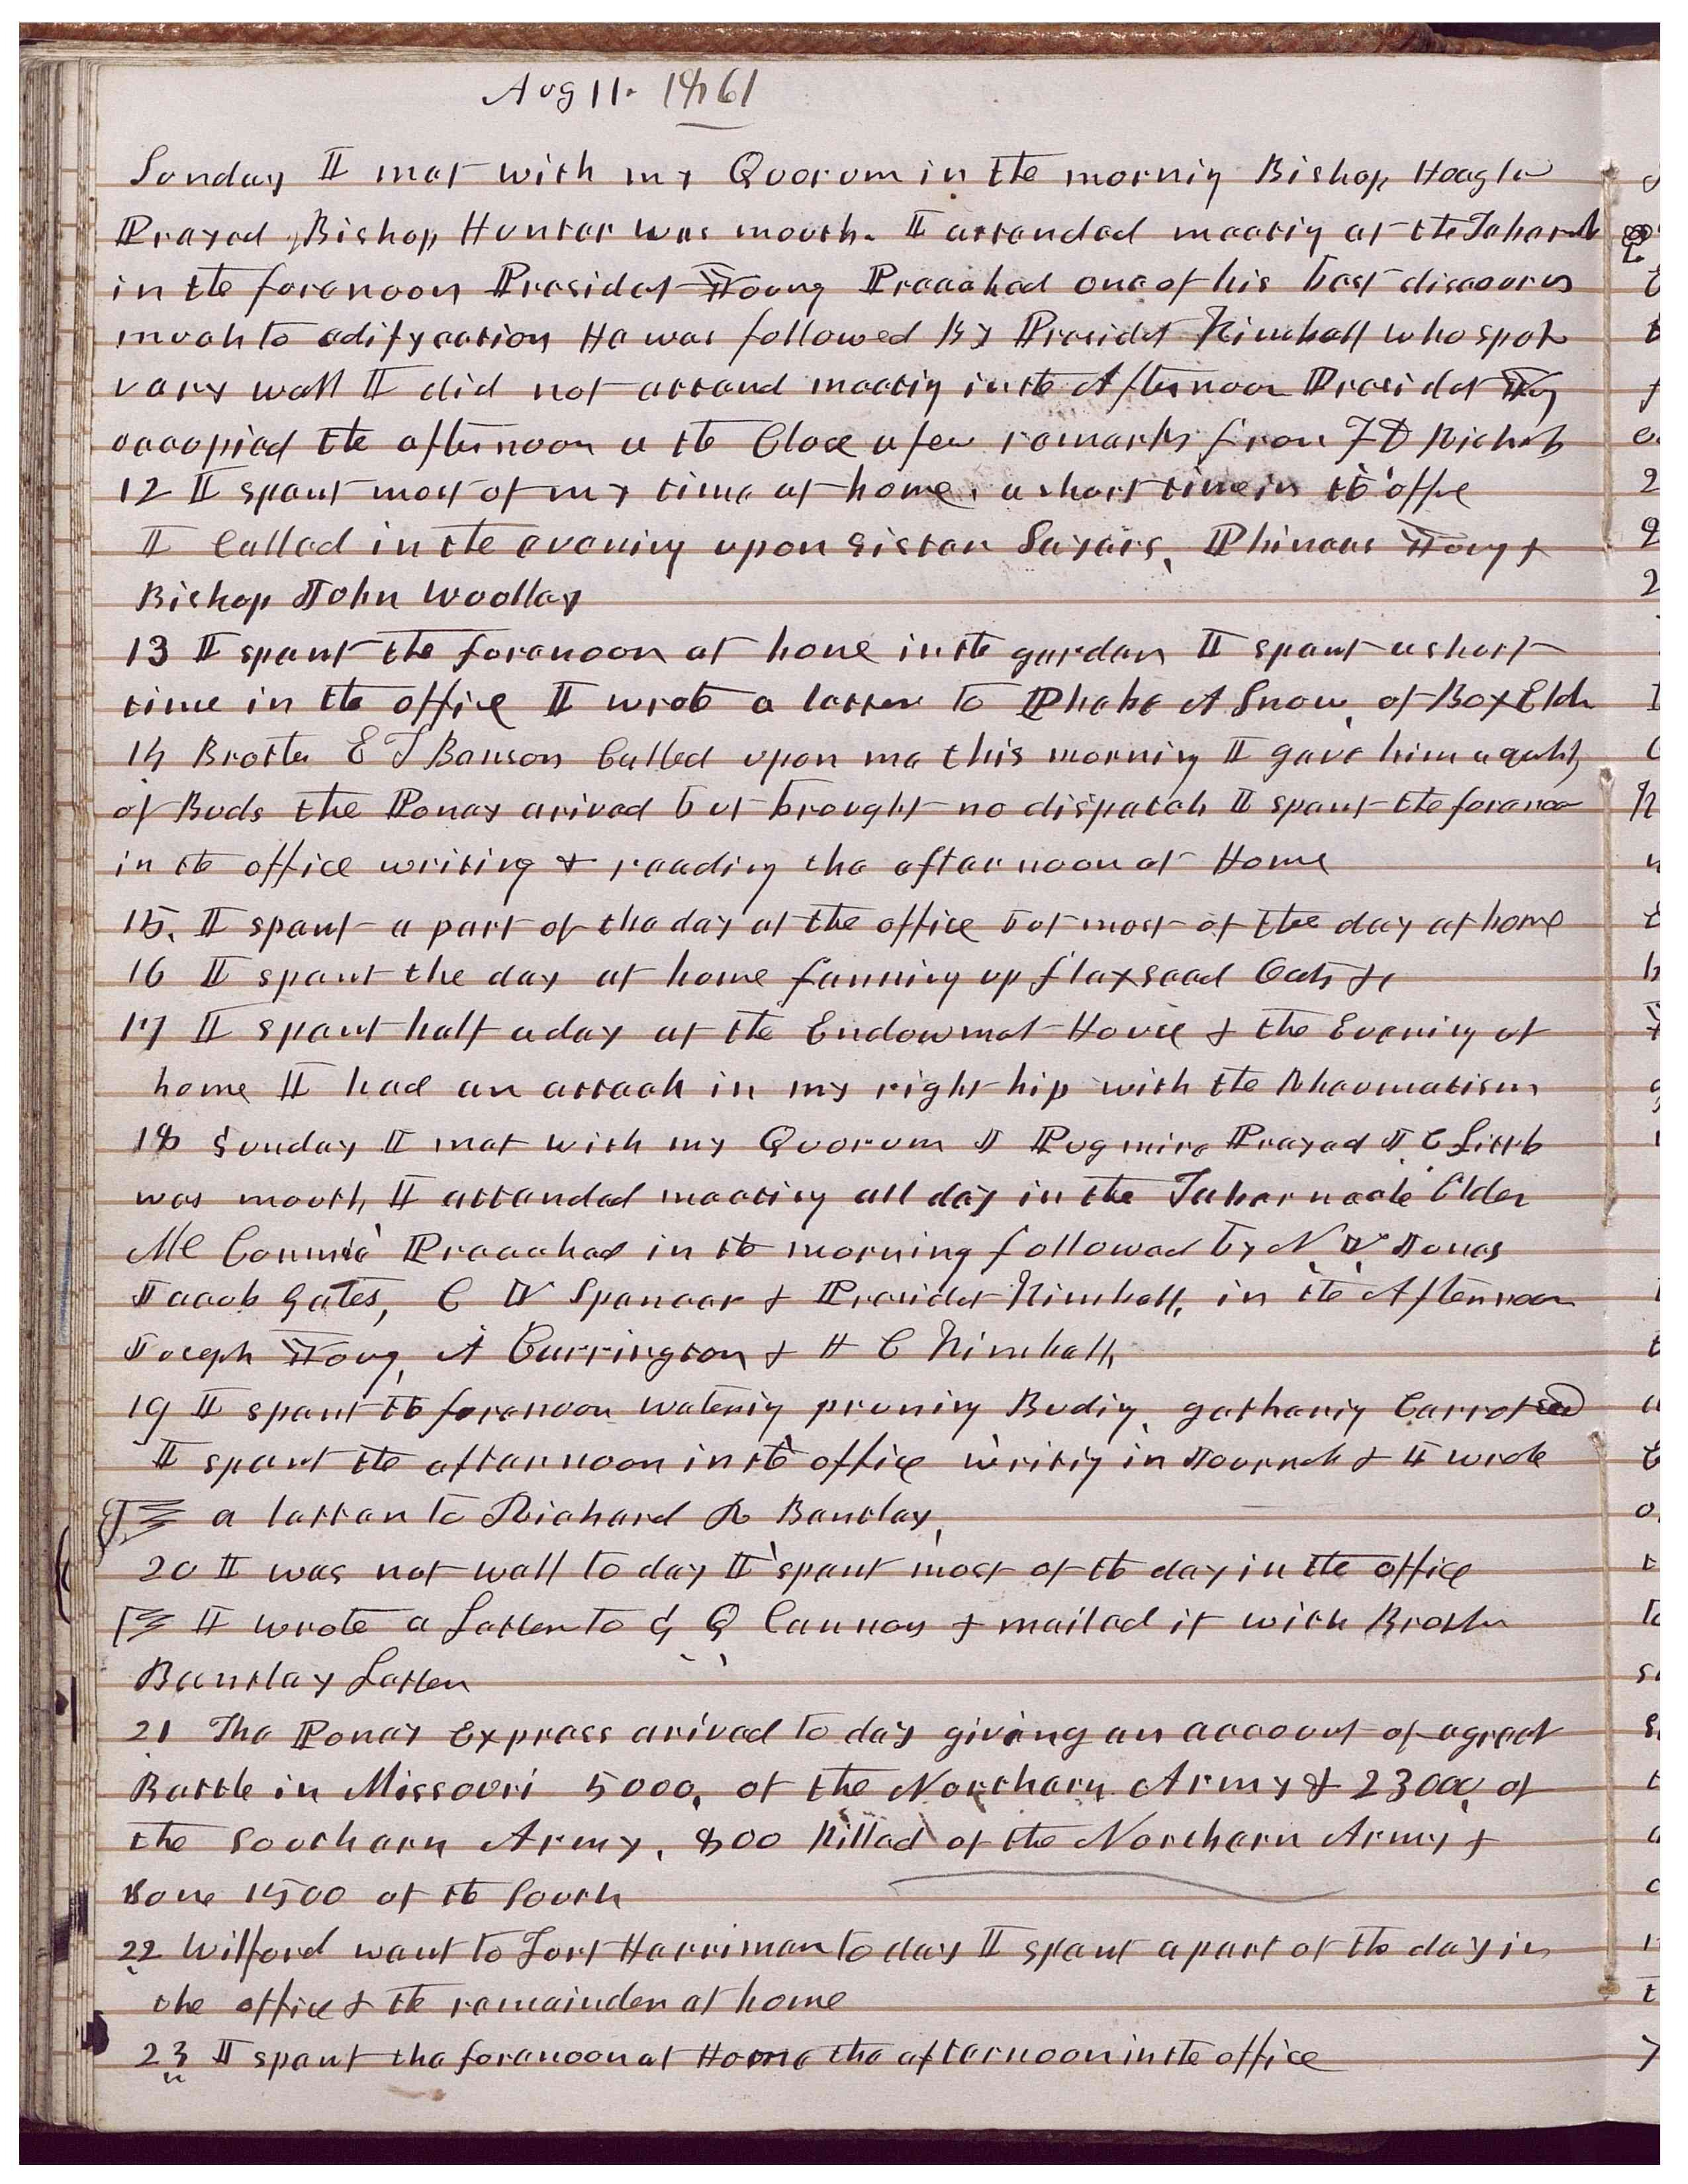 Aug 11. 1861
Sunday I met with my Quorum in the morning Bishop Hoagla
Prayed, Bishop Hunter was mouth. I attended meeting at the Tabernl
in the forenoon Presidet Young Preached one of his best discours
much to edifycation He was followed By Presidt Kimball who spok
very well I did not attend meeting in the Afternoon Presidet Yg
occupied the afternoon a the Close a few remarks from F D Richds
12 I spent most of my time at home, a short time in the offic
I Called in the evening upon Sister Sayers, Phineas Young &
Bishop John Woolley
13 I spent the forenoon at home in the garden I spent a short
time in the office I wrote a letter to Phebe A Snow, of Box Elder
14 Brother E T Benson Called upon me this morning I gave him a qutity
of Buds the Poney arived but brought no dispatch I spent the forenoon
in the office writing & reading the afternoon at Home
15. I spent a part of the day at the office but most of the day at home
16 I spent the day at home fanning up flaxseed Oats &c
17 I spent half a day at the Endowmet House & the Evening at
home I had an attack in my right hip with the Rheumatism
18 Sunday I met with my Quorum J Pugmire Prayed J. C Little
was mouth, I attended meeting all day in the Tabernacle Elder
Mc Cunnie Preached in the morning followed by N. V. Jones
Jacob Gates, C W Spencer & Presidet Kimball, in the Afternoon
Joseph Young, A Carrington & H C Kimball,
19 I spent the forenoon watering pruning Buding, gathering Carrot seed
I spent the afternoon in the office writing in Journal & I wrote
a letter to Richard R Bentley,
20 I was not well to day I spent most of the day in the office
I wrote a Letter to G Q Cannon & mailed it with Brother
Bentley Letter
21 The Poney Express arived to day giving an account of a great
Battle in Missouri 5000, of the Northern Army & 23000, of
the Southern Army, 800 Killed of the Northern Army &
some 1500 of the South
22 Wilford went to Fort Harriman to day I spent a part of the day in
the office & the remainder at home
23 I spent the forenoon at Home the afternoon in the office